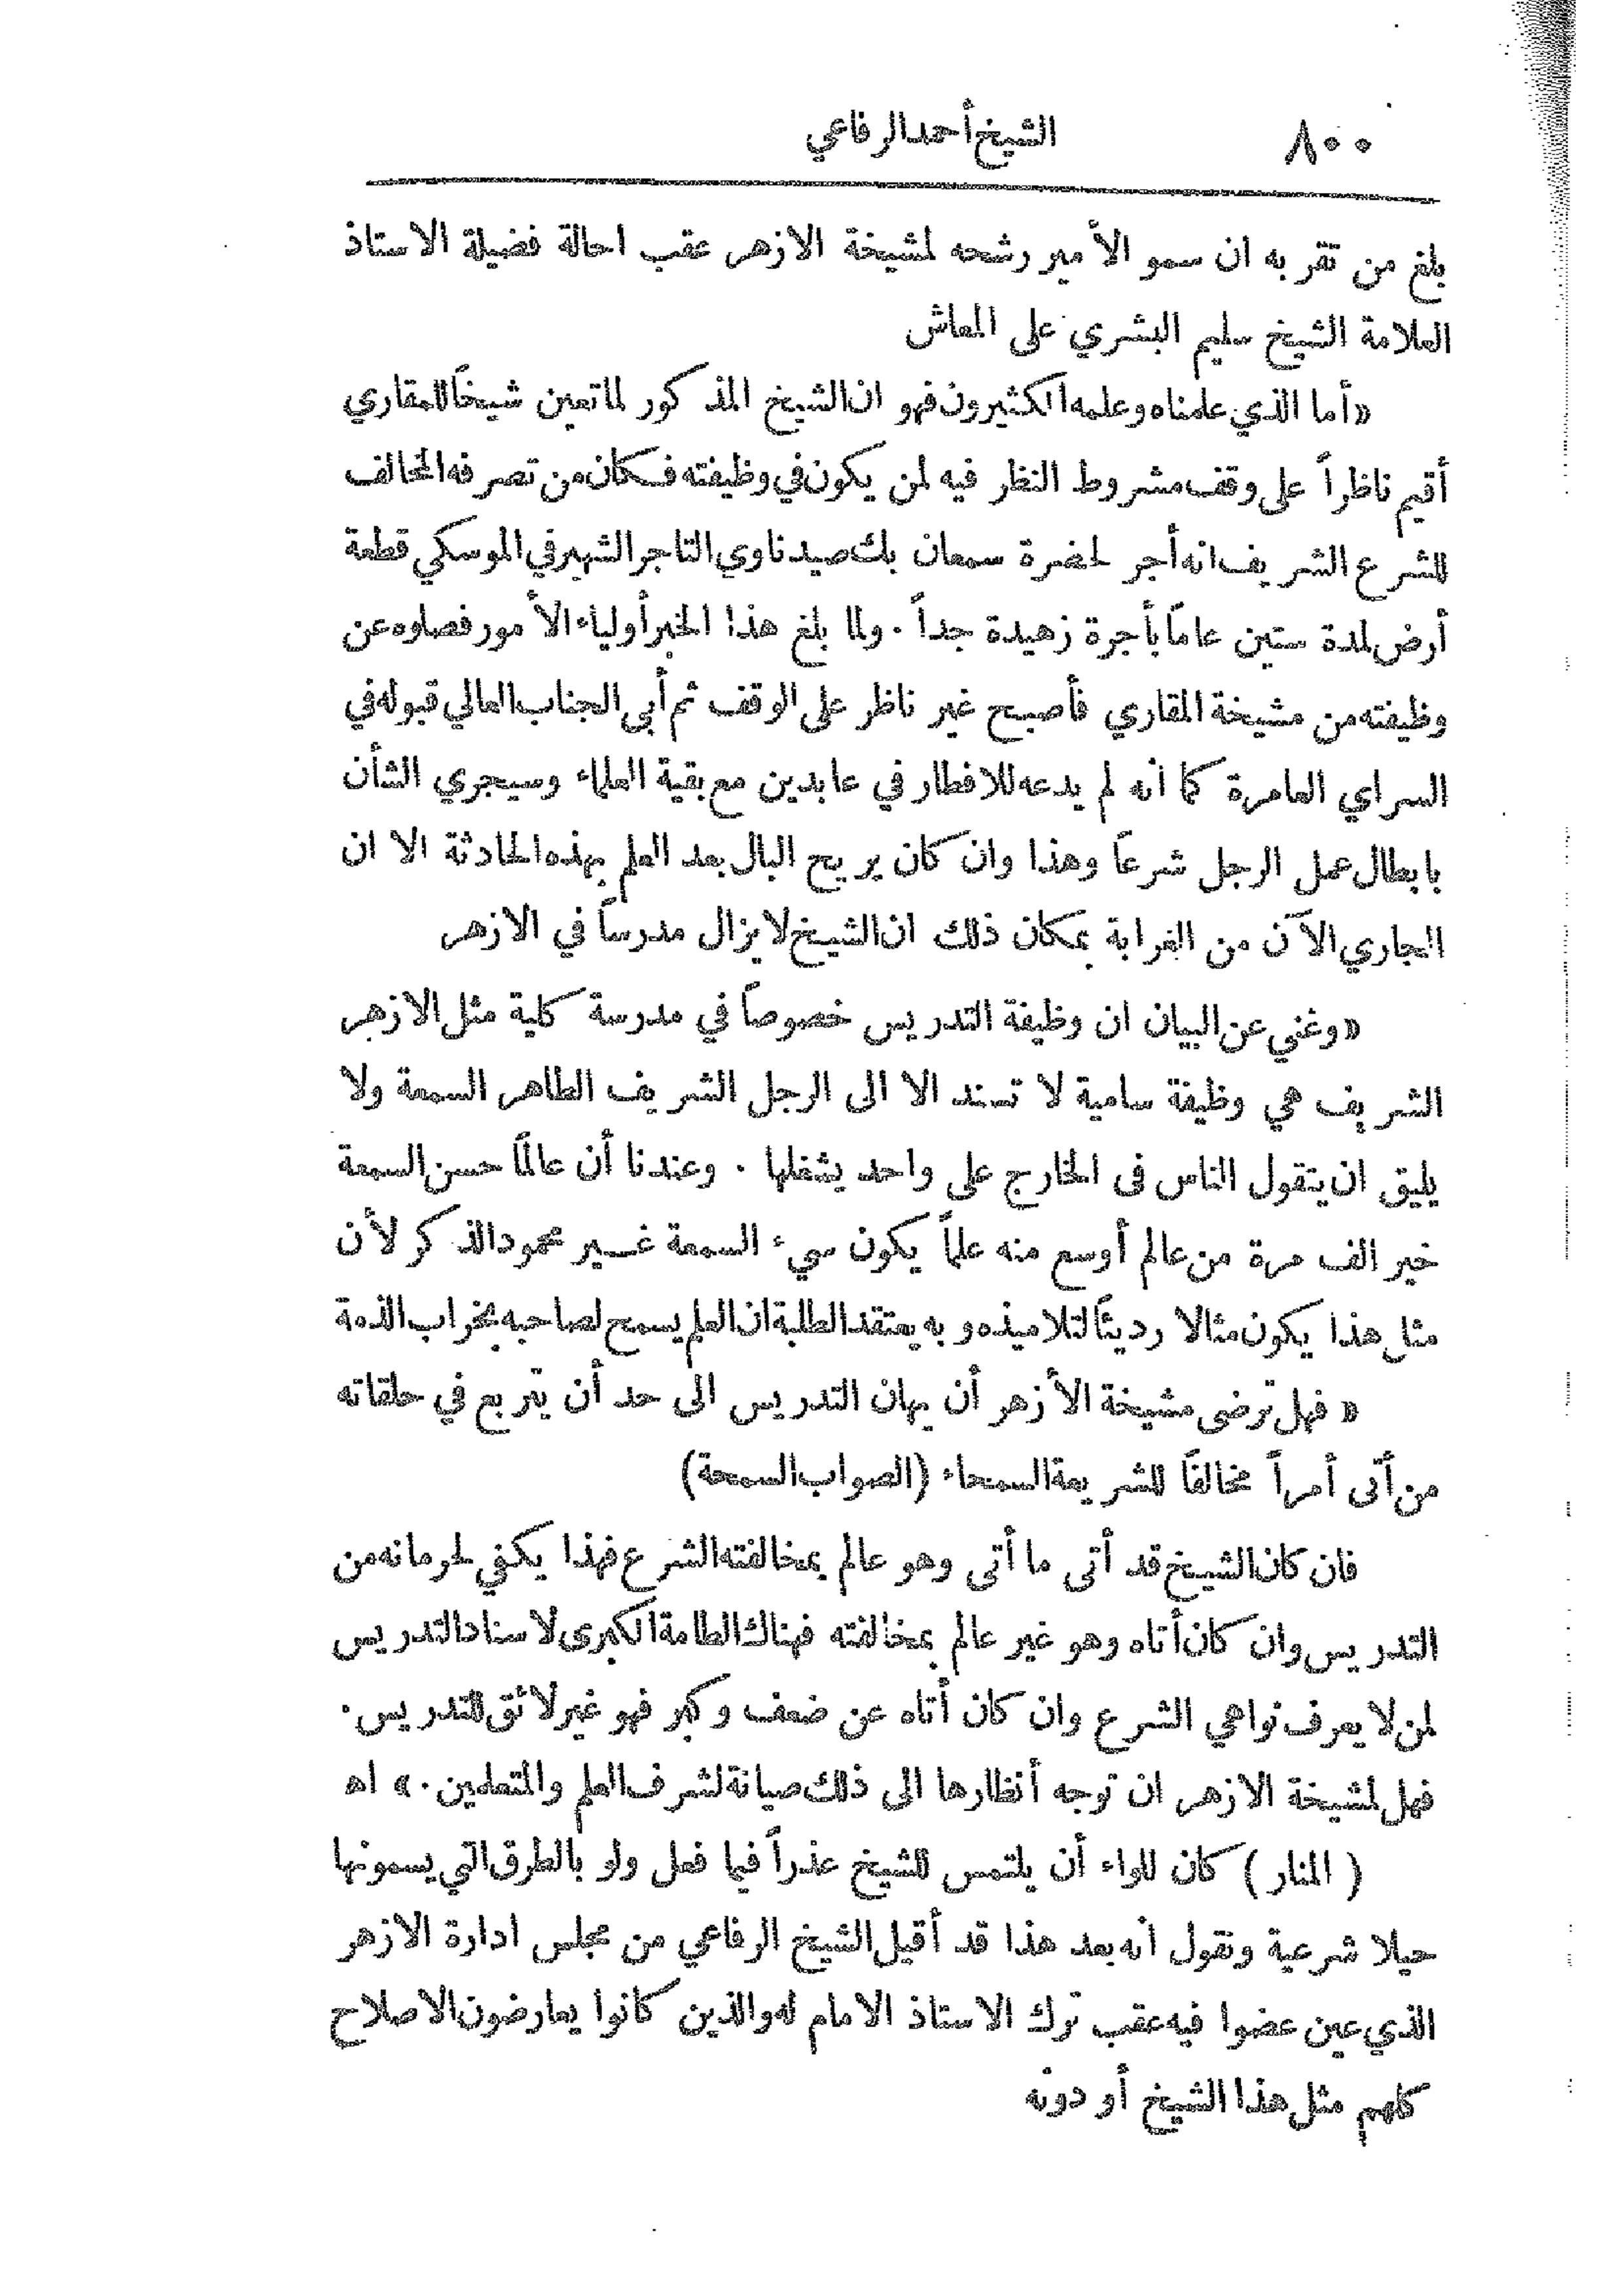 ٨٠٠ الشيخ أحمد الرفاعي
بلغ من تقربه ان سمو الأمير رشحه لمشيخة الازهر عقب احالة فضيلة الاستاذ
العلامة الشيخ سليم البشري على المعاش
«أما الذي علمناه وعلمه الكثيرون فهو ان الشيخ المذكور لما تعين شيخاً للمقاري
أقيم ناظراً على وقف مشروط النظر فيه لمن يكون في وظيفته فكان من تصرفه المخالف
للشرع الشريف انه أجر لحضرة سمعان بك صيدناوي التاجر الشهير في الموسكي قطعة
أرض لمدة ستين عاماً بأجرة زهيدة جداً . ولما بلغ هذا الخبر أولياء الأمور فصلوه عن
وظيفته من مشيخة المقاري فأصبح غير ناظر على الوقف ثم أبى الجناب العالي قبوله في
السراي العامرة كما أنه لم يدعه للافطار في عابدين مع بقية العلماء وسيجري الشأن
بابطال عمل الرجل شرعاً وهذا وان كان يريح البال بعد العلم بهذه الحادثة الا ان
الجاري الآن من الغرابة بمكان ذلك ان الشيخ لا يزال مدرساً في الازهر
«وغني عن البيان ان وظيفة التدريس خصوصاً في مدرسة كلية مثل الازهر
الشريف هي وظيفة سامية لا تسند الا الى الرجل الشريف الطاهر السمعة ولا
يليق ان يتقول الناس فى الخارج على واحد يشغلها . وعندنا أن عالماً حسن السمعة
خير الف مرة من عالم أوسع منه علماً يكون سيء السمعة غير محمود الذكر لأن
مثل هذا يكون مثالا رديئاً لتلاميذه وبه يعتقد الطلبة ان العلم يسمح لصاحبه بخراب الذمة
« فهل ترضى مشيخة الأزهر أن يهان التدريس الى حد أن يتربع في حلقاته
من أتى أمراً مخالفاً للشريعة السمحاء (الصواب السمحة)
فان كان الشيخ قد أتى ما أتى وهو عالم بمخالفته الشرع فهذا يكفي لحرمانه من
التدريس وان كان أتاه وهو غير عالم بمخالفته فهناك الطامة الكبرى لاسناد التدريس
لمن لا يعرف نواهي الشرع وان كان أتاه عن ضعف وكبر فهو غير لائق للتدريس .
فهل لمشيخة الازهر ان توجه أنظارها الى ذلك صيانة لشرف العلم والمتعلمين . » اه
( المنار ) كان للواء أن يلتمس للشيخ عذراً فيما فعل ولو بالطرق التي يسمونها
حيلا شرعية ونقول انه بعد هذا قد أقيل الشيخ الرفاعي من مجلس ادارة الازهر
الذي عين عضوا فيه عقب ترك الاستاذ الامام له والذين كانوا يعارضون الاصلاح
كلهم مثل هذا الشيخ أو دونه